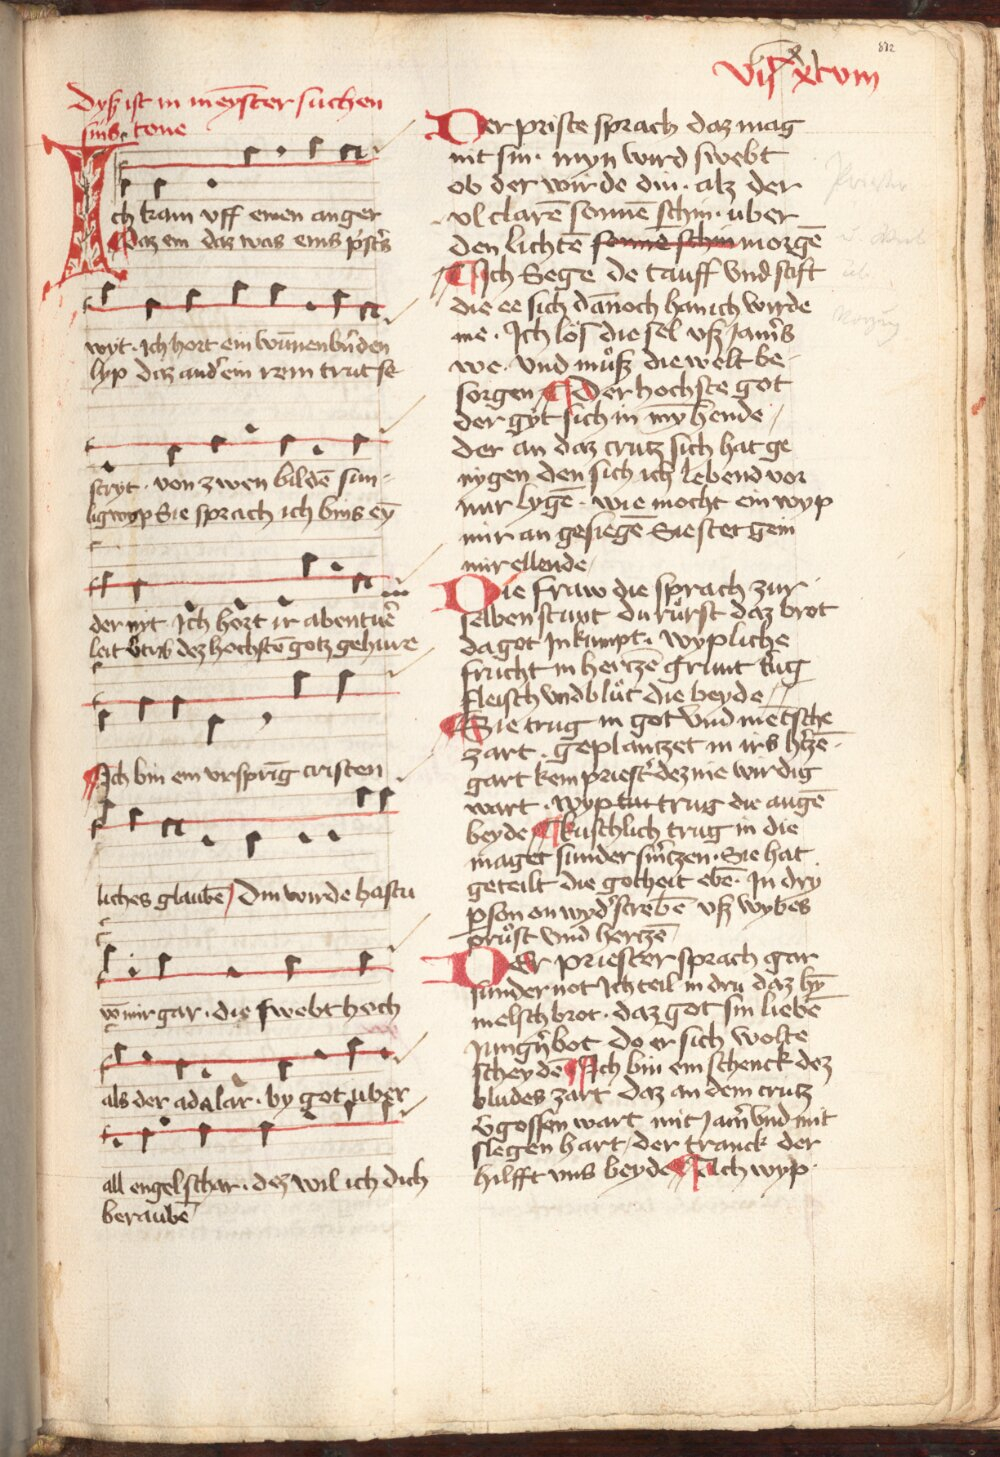 812
vijᶜ xcviii
Dyß ist in meyster suchen
sins tone
Ich kam vff einen anger
Daz ein daz was eins pͥsters
wyt · Ich hort ein wu̅nenbernden
lyp daz ander ein rein trut se
stryt · von zwen bildē sun
lig wyp Sie sprach ich bins ey̅
der nyt Ich hort ir abentue̅r
leit dez hochstē gotz gehiure
Ich bin ein vrspri̅g cristen
liches glaubē / Din wirde hastu
vō mir gar · die swebt hoch
als der adalar · by got uber
all engel schar · dez wil ich dich
beraubē
Der priste sprach daz mag
nit sin · myn wird swebt
ob der wirde din · alz der
vl clarē sonnē schin · uber
den lichtē sonnē schin morgē
Ich Sege de tauff vnd stift
die ee sich da̅noch han ich wirde
me · Ich löß die sel vß Jamers
we · vnd můß die welt be
sorgen Der hochste got
der gyt sich in my̅ hende /
der an daz crutz sich hat ge
nygen den sich ich lebend vor
mir lygē · wie mocht ein wyp
mir an gesiegē Sie stet gein
mir ellende
Die fraw die sprach zur
selben stunt du růrst daz brot
da got In kumpt · wypliche
frucht in hertzē grunt trug
fleisch vnd blůt die beyde /
Sie trug in got vnd mētsche
zart · geplantzet in irs hͤtzē
gart kein priestͤ dez nie wirdig
wart · wyp trug die augē
beyde kuschlich trug in die
maget sunder smͤtzen · Sie hat
geteilt die gocheit ebē · In dry
pson on wydͤstrebē vß wybes
průst vnd hertzē
Der priester sprach gar
sunder not Ich teil in dru daz hy̅
melsch brot · daz got sin liebē
Jungͤn bot do er sich wolte
scheydē Ich bin ein schenck dez
bludes zart daz an dem crutz
vͤgossen wart mit Jamͤ vnd mit
slegen hart / der tranck der
hilfft vns beyde Ach wyp ·